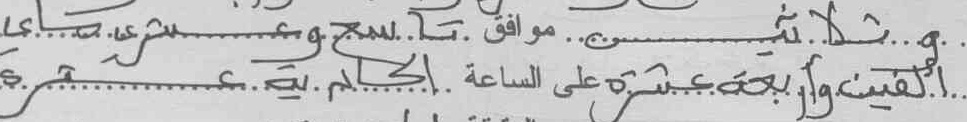 وثلاثين موافق تاسع وعشرين ماي
ألفين وأربعة عشرة على الساعة الحادية عشرة